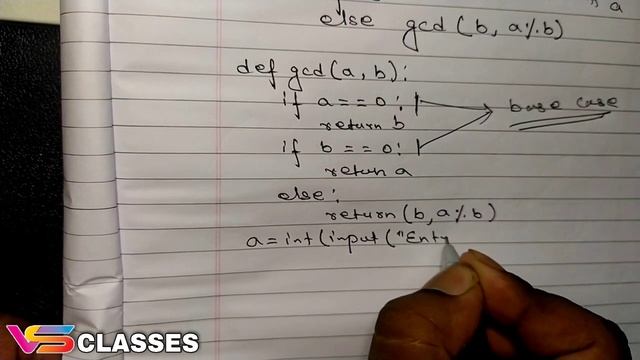 a
else gcd (b, a%b)
def gcd(a, b):
if a == 0:
return b
if b == 0:
return a
base case
else:
return (b, a%b)
a = int (input ("Ente
VS CLASSES